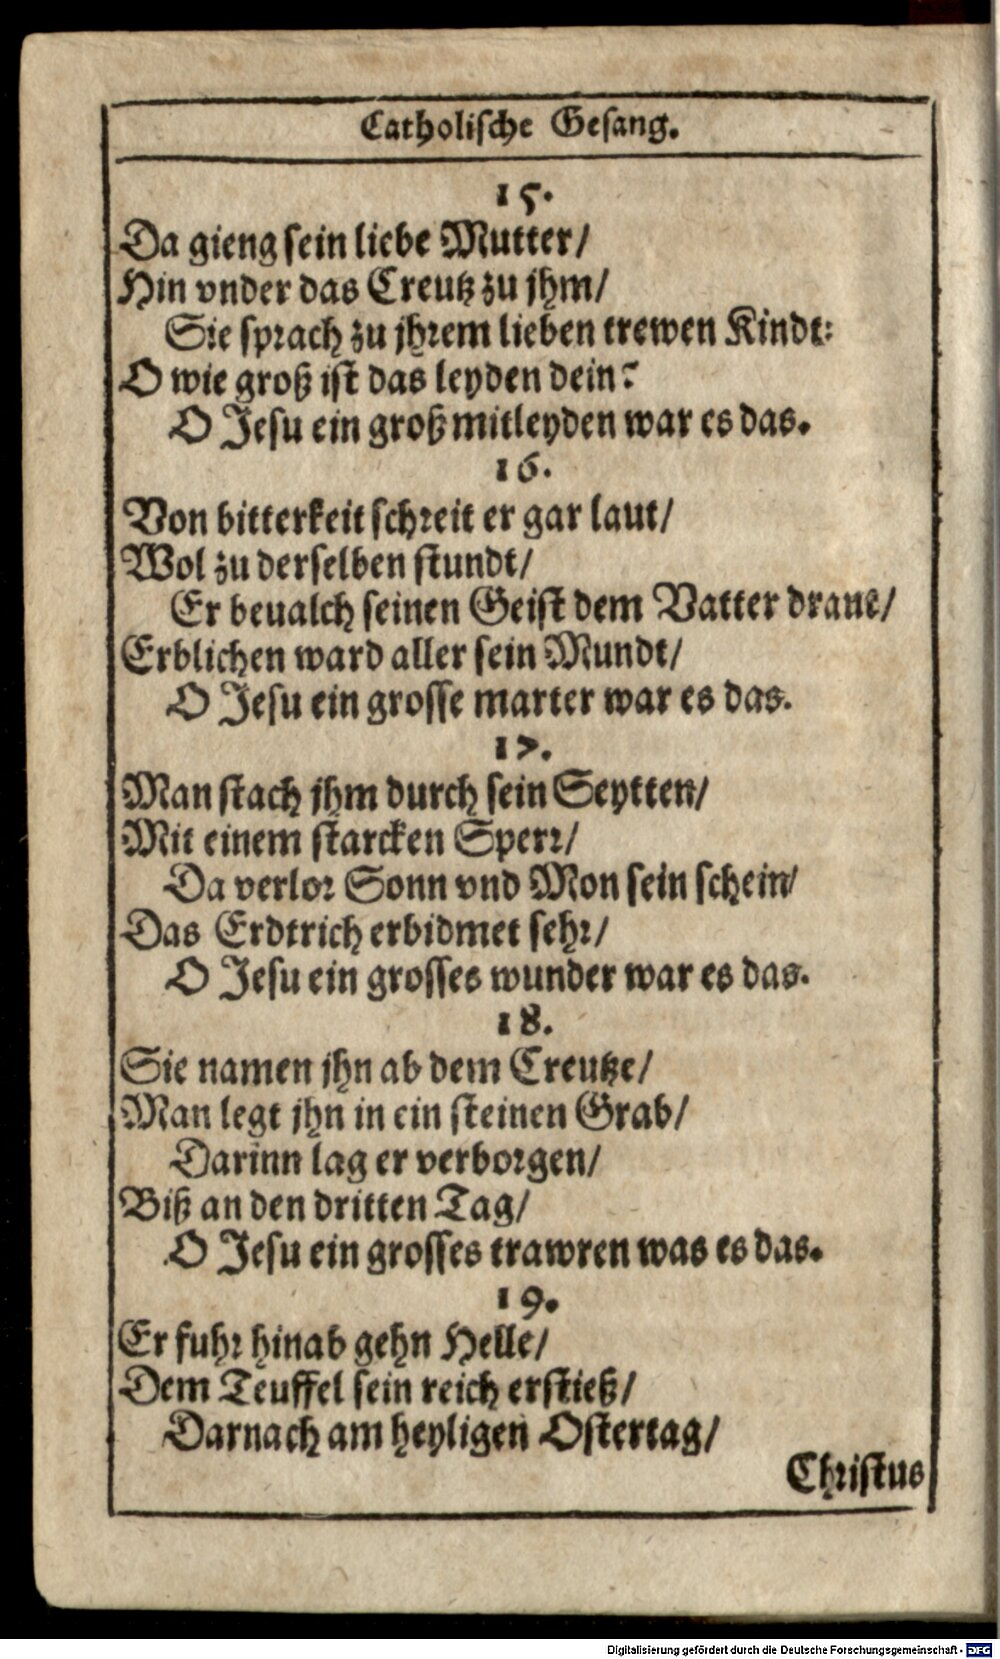 Catholische Gesang.
15.
Da gieng sein liebe Mutter/
Hin vnder das Creutz zu jhm/
Sie sprach zu jhrem lieben trewen Kindt:
O wie groß ist das leyden dein?
O Jesu ein groß mitleyden war es das.
16.
Von bitterkeit schreit er gar laut/
Wol zu derselben stundt/
Er beualch seinen Geist dem Vatter draut/
Erblichen ward aller sein Mundt/
O Jesu ein grosse marter war es das.
17.
Man stach jhm durch sein Seytten/
Mit einem starcken Sperr/
Da verlor Sonn vnd Mon sein schein/
Das Erdtrich erbidmet sehr/
O Jesu ein grosses wunder war es das.
18.
Sie namen jhn ab dem Creutze/
Man legt jhn in ein steinen Grab/
Darinn lag er verborgen/
Biß an den dritten Tag/
O Jesu ein grosses trawren was es das.
19.
Er fuhr hinab gehn Helle/
Dem Teuffel sein reich erstieß/
Darnach am heyligen Ostertag/
Christus
Digitalisierung gefördert durch die Deutsche Forschungsgemeinschaft - DFG